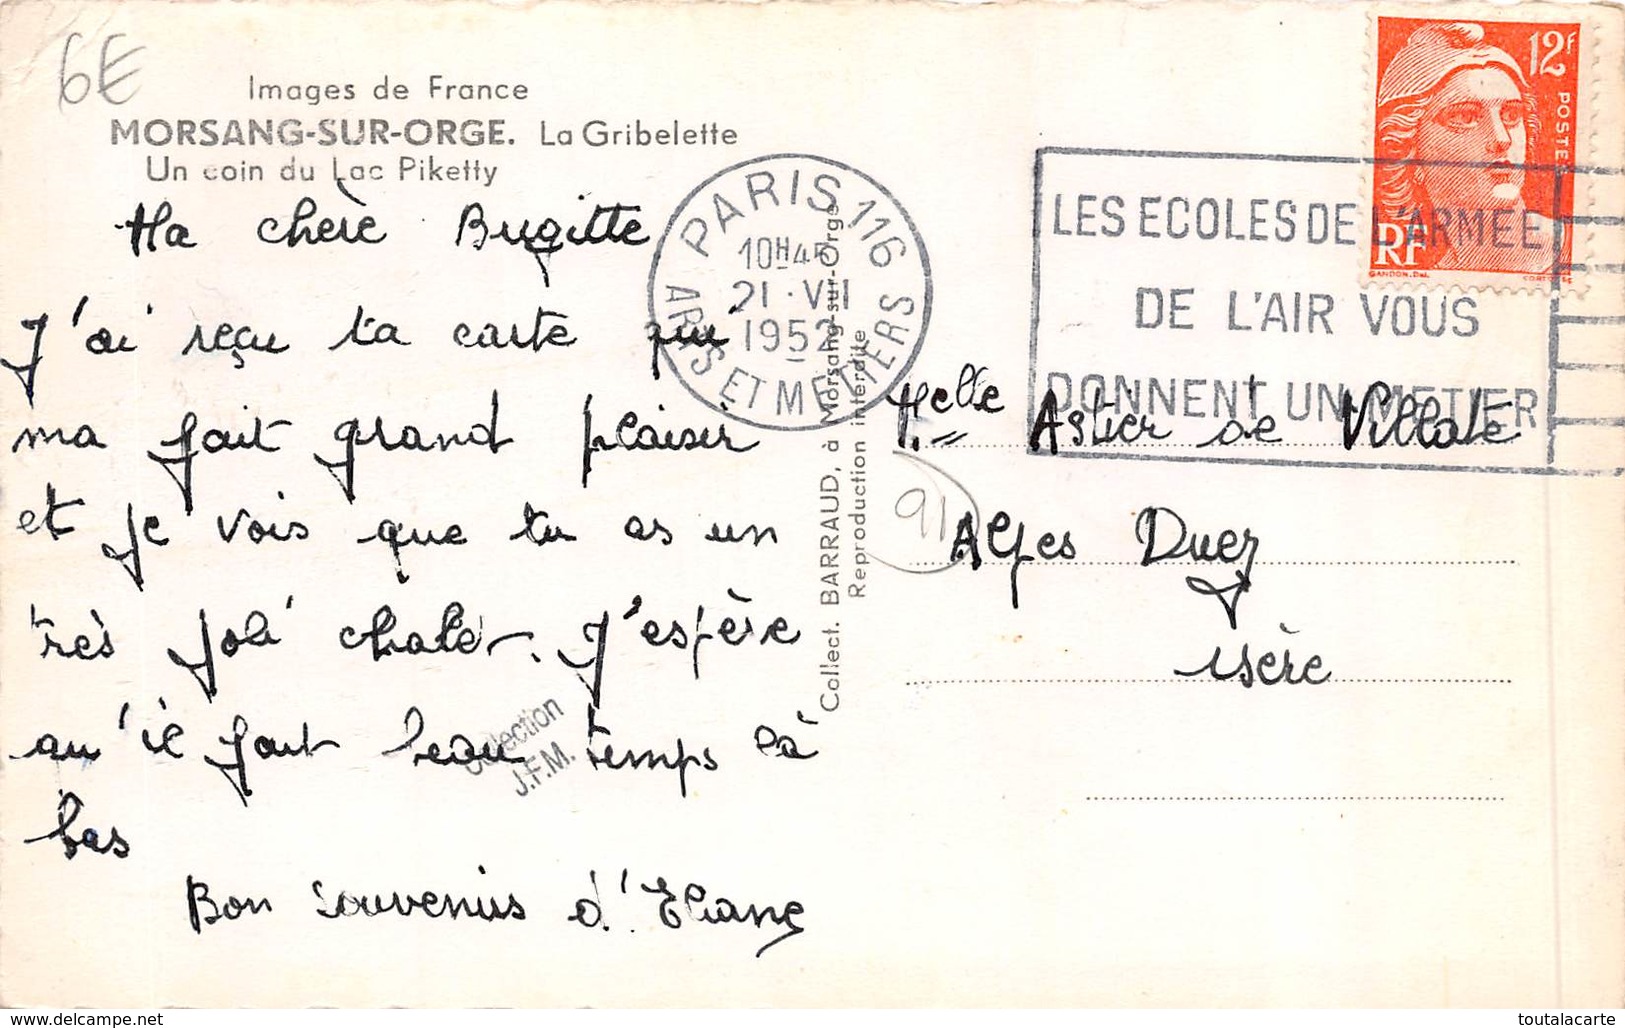 6E
Images de France
MORSANG-SUR-ORGE. La Gribelette
Un coin du Lac Piketty
Ma chère Brigitte
J'ai reçu ta carte qui
ma fait grand plaisir
et je vois que tu as un
très joli chalet. J'espère
qu'il fait beau temps là
bas
Bon souvenirs d'Eliane
Collection
J.F.M.
PARIS 116
10H45
21·VII
1952
ARTS ET METIERS
Collect. BARRAUD, à Morsang-sur-Orge
Reproduction interdite
12F
POSTES
RF
GANDON.Del.
CORTOT.SC
LES ECOLES DE L'ARMEE
DE L'AIR VOUS
DONNENT UN METIER
Melle Astier de Villate
91
Alpes Duez
isère
www.delcampe.net
toutalacarte